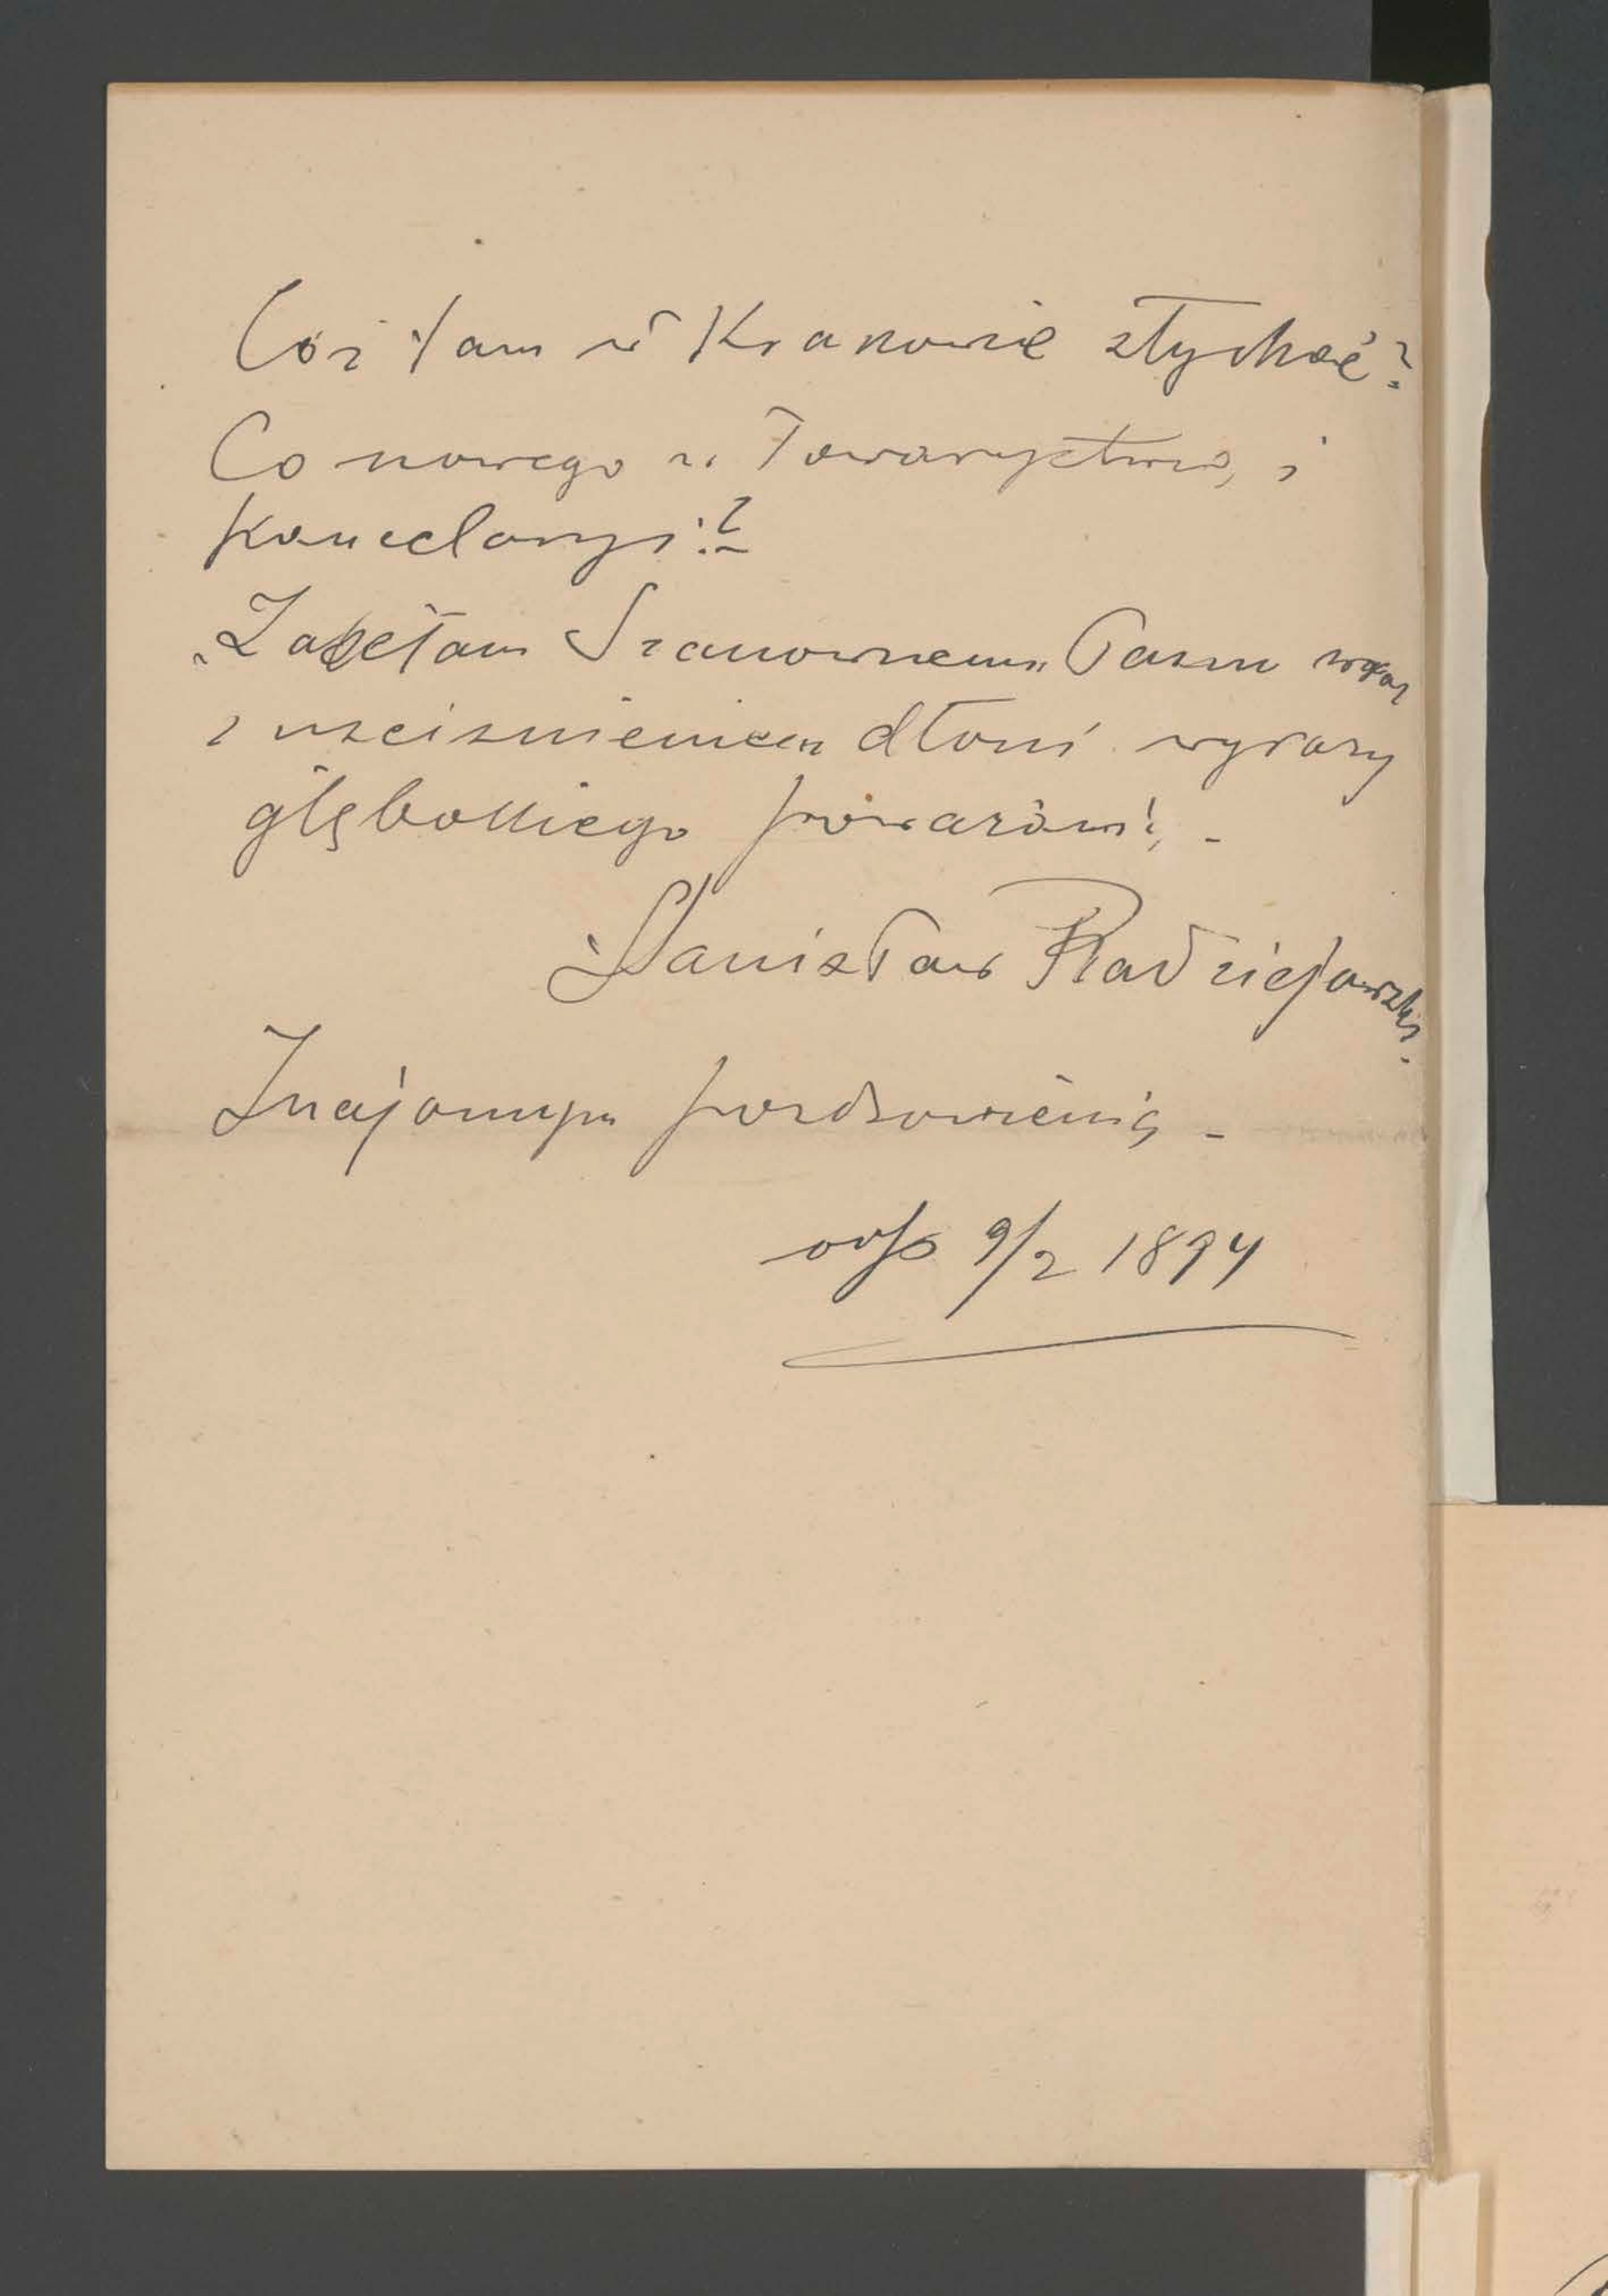 Cóż tam w Krakowie słychać?
Co nowego w Towarzystwie, i
Kancelaryi?
Załączam Szanownemu Panu wraz
z uściśnieniem dłoni wyrazy
głębokiego poważania, -
Stanisław Radziejowski.
Znajomym pozdrowienia -
odp 9/2 1894